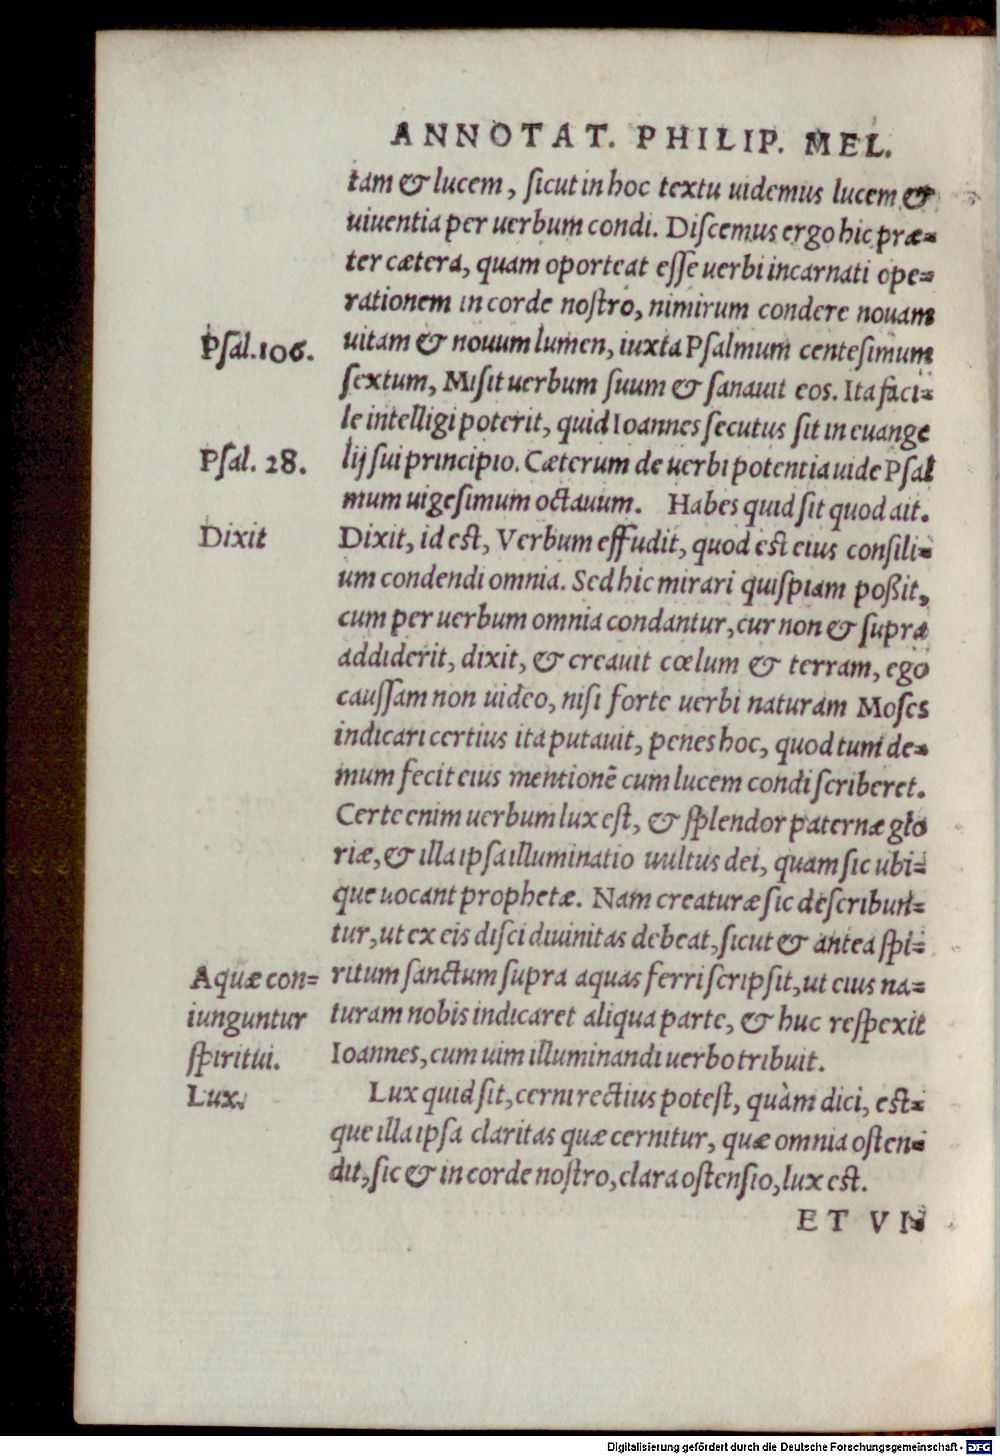 ANNOTAT. PHILIP. MEL.
tam & lucem, ſicut in hoc textu uidemus lucem &
uiuentia per uerbum condi. Diſcemus ergo hic præ=
ter cætera, quam oporteat eſſe uerbi incarnati ope=
rationem in corde noſtro, nimirum condere nouam
Pſal.106.
uitam & nouum lumen, iuxta Pſalmum centeſimum
ſextum, Miſit uerbum ſuum & ſanauit eos. Ita faci=
le intelligi poterit, quid Ioannes ſecutus ſit in euange
Pſal. 28.
lij ſui principio. Cæterum de uerbi potentia uide Pſal
mum uigeſimum octauum. Habes quid ſit quod ait.
Dixit
Dixit, id est, Verbum effudit, quod est eius conſili=
um condendi omnia. Sed hic mirari quiſpiam poßit,
cum per uerbum omnia condantur, cur non & ſupra
addiderit, dixit, & creauit cœlum & terram, ego
cauſſam non uideo, niſi forte uerbi naturam Moſes
indicari certius ita putauit, penes hoc, quod tum de=
mum fecit eius mentionẽ cum lucem condi ſcriberet.
Certe enim uerbum lux eſt, & ſplendor paternæ glo
riæ, & illa ipſa illuminatio uultus dei, quam ſic ubi=
que uocant prophetæ. Nam creaturæ ſic deſcribun=
tur, ut ex eis diſci diuinitas debeat, ſicut & antea ſpi=
Aquæ con=
iunguntur
ſpiritui.
ritum ſanctum ſupra aquas ferri ſcripſit, ut eius na=
turam nobis indicaret aliqua parte, & huc reſpexit
Ioannes, cum uim illuminandi uerbo tribuit.
Lux.
Lux quid ſit, cerni rectius poteſt, quàm dici, est=
que illa ipſa claritas quæ cernitur, quæ omnia oſten=
dit, ſic & in corde noſtro, clara oſtenſio, lux est.
ET VI=
Digitalisierung gefördert durch die Deutsche Forschungsgemeinschaft - DFG